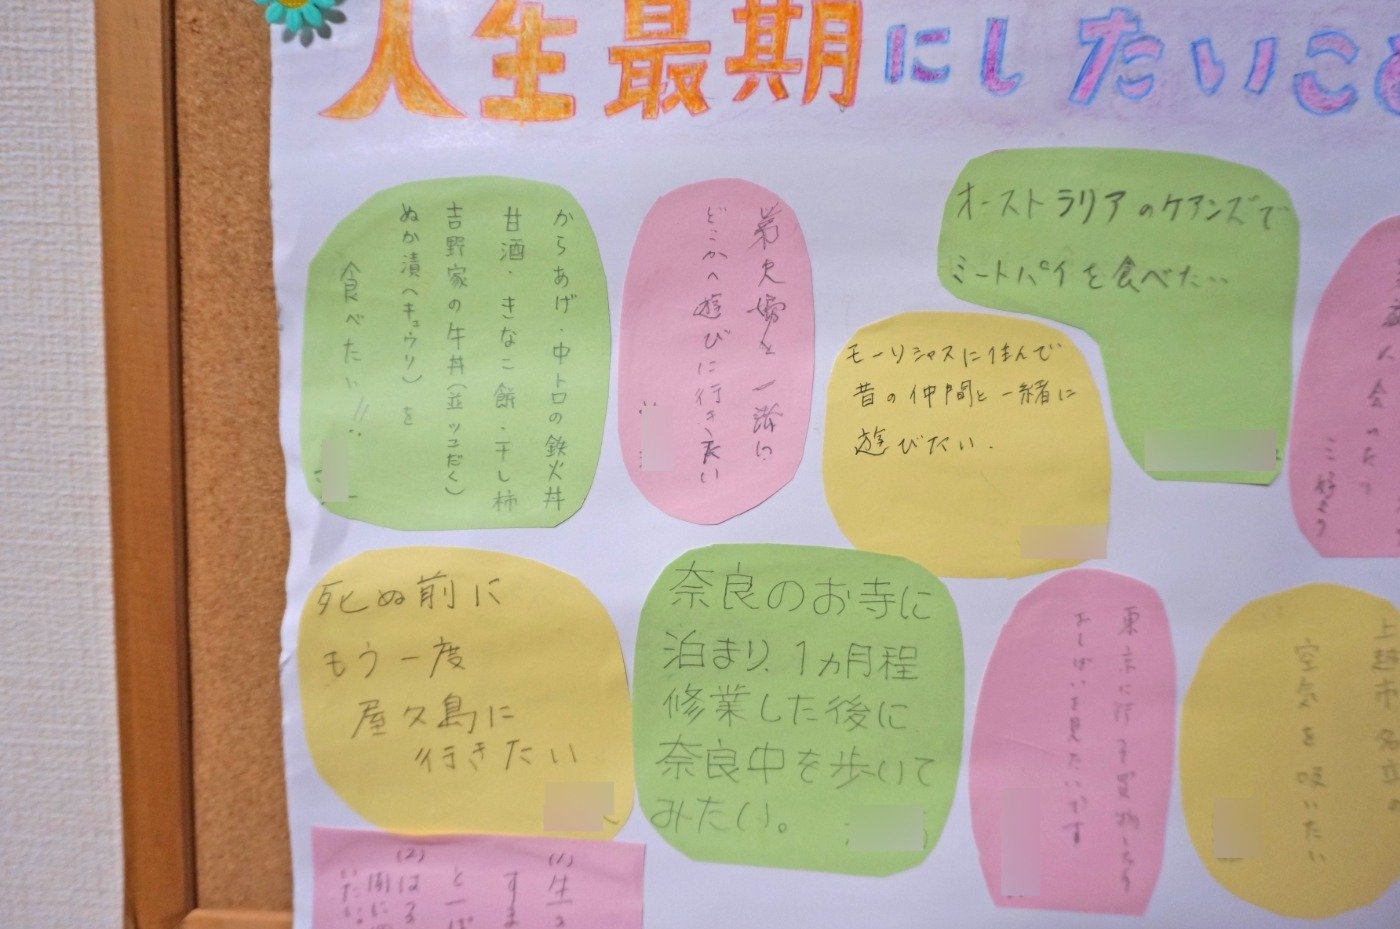 人生最期にしたいこと
からあげ・中トロの鉄火丼
甘酒・きなこ餅・干し柿
吉野家の牛丼(並ツユだく)
ぬか漬(キュウリ)を
食べたい!!
弟夫婦と一諸に
どこかへ遊びに行きたい
オーストラリアのケアンズで
ミートパイを食べた…
モーリシャスに住んで
昔の仲間と一緒に
遊びたい.
死ぬ前に
もう一度
屋久島に
行きたい
奈良のお寺に
泊まり、1ヵ月程
修業した後に
奈良中を歩いて
みたい。
東京に行き買物
おしばいを見たいです
上越市名立
空気を吸いたい
(1)生
(2)はる